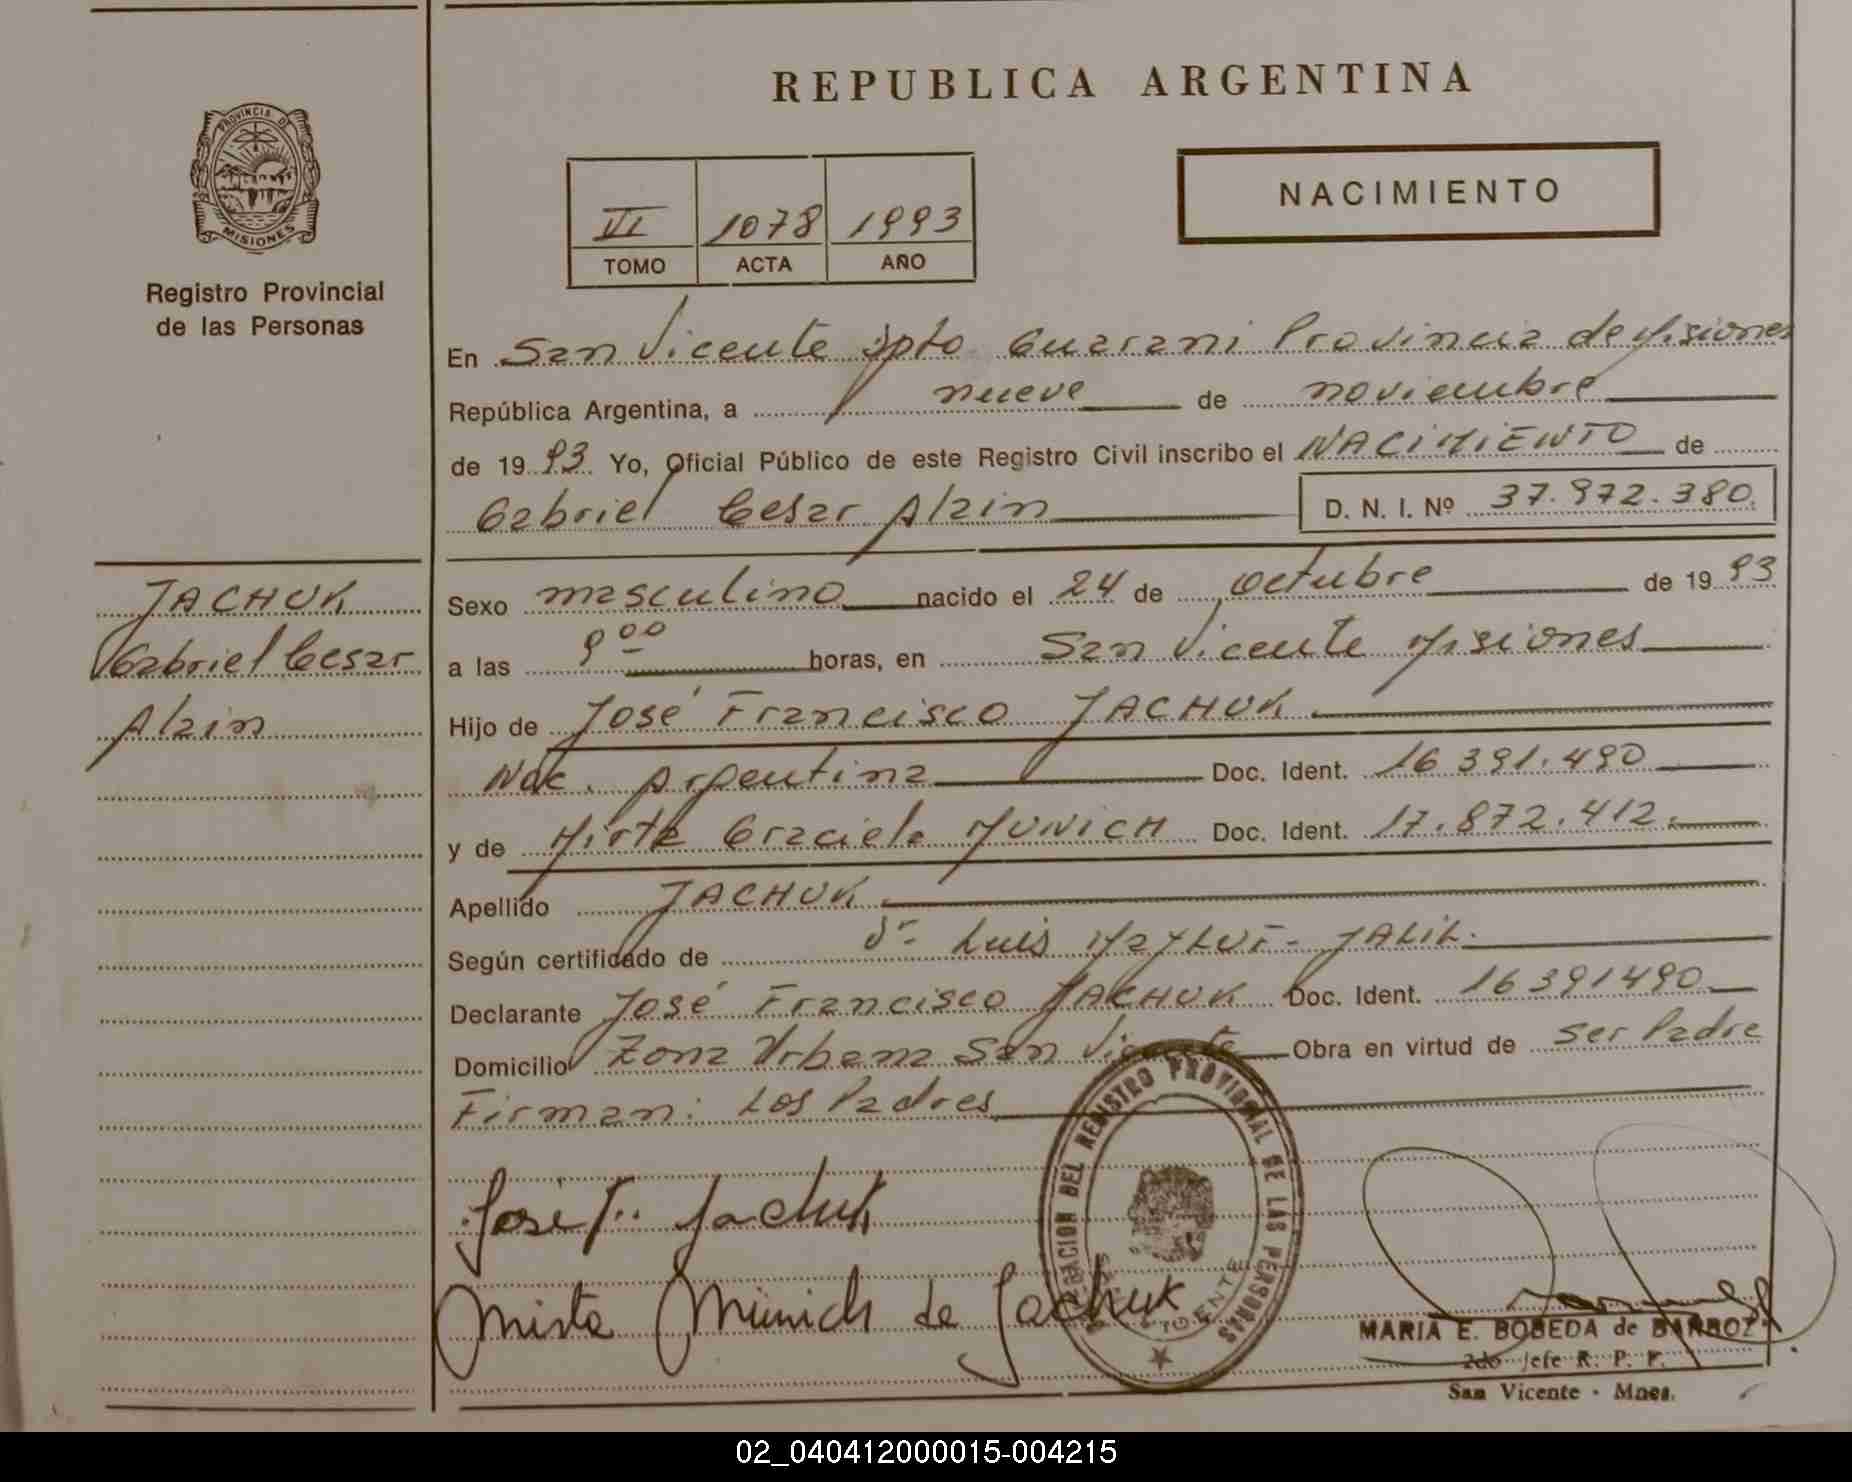 REPUBLICA ARGENTINA
PROVINCIA DE
MISIONES
Registro Provincial
de las Personas
NACIMIENTO
VI 1078 1993
TOMO ACTA AÑO
En San Vicente Dpto Guarani Provincia de Misiones
República Argentina, a nueve de noviembre
de 1993 Yo, Oficial Público de este Registro Civil inscribo el NACIMIENTO de
Gabriel Cesar Alain D. N. I. Nº 37.972.380.
JACHUK
Gabriel Cesar
Alain
Sexo masculino nacido el 24 de octubre de 1993
a las 9 00 horas, en San Vicente Misiones
Hijo de José Francisco JACHUK
Nac. Argentina Doc. Ident. 16 391.490
y de Mirta Graciela MUNICH Doc. Ident. 17.872.412.
Apellido JACHUK
Según certificado de Dr. Luis JALIL.
Declarante José Francisco JACHUK Doc. Ident. 16391490
Domicilio Zona Urbana San Vicente Obra en virtud de ser Padre
Firman: Los Padres
José F. Jachuk
Mirta Münich de Jachuk
DEL REGISTRO PROVINCIAL DE LAS PERSONAS
MARIA E. BOBEDA de BARBOZA
2do Jefe R. P. P.
San Vicente - Mnes.
02_040412000015-004215